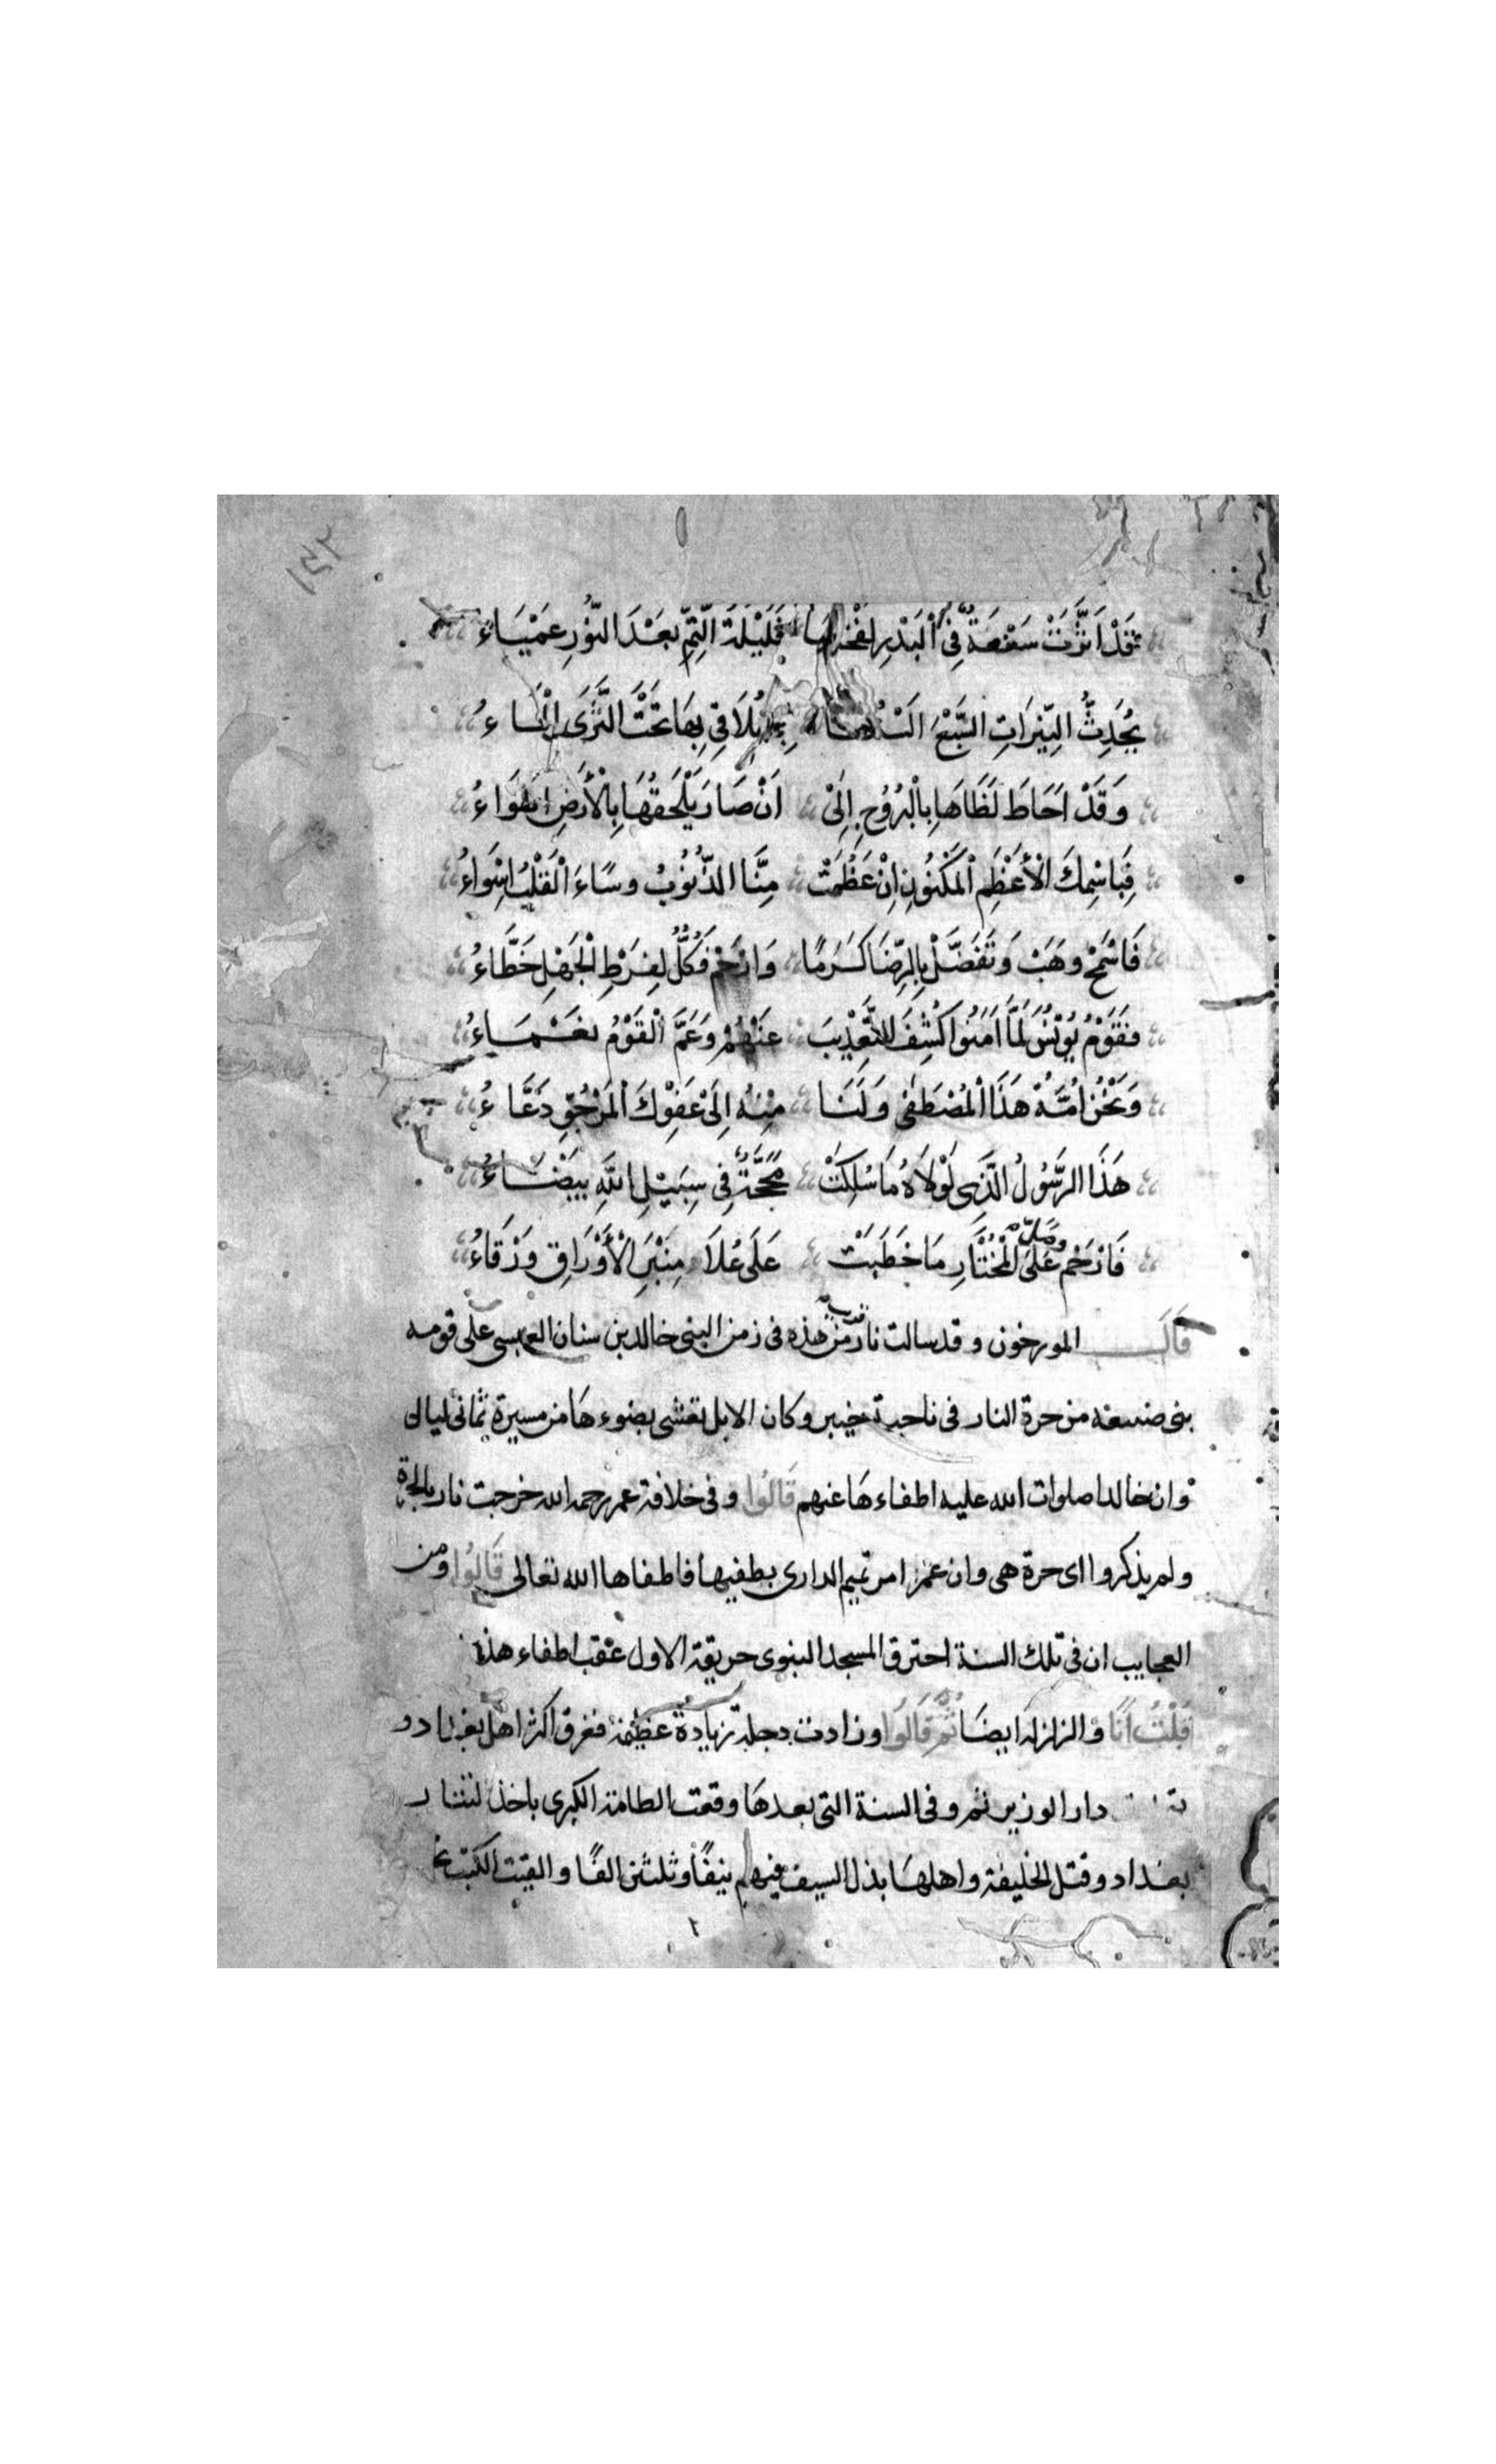 ١٥٢
قَدْ اَثَّرَتْ سَعْفَةٌ فِى اَلْبَدْرِ لَفْحَتُهَا فَلَيْلَةُ التِّمِّ بَعْدَ النُّورِ عَمْيَاءُ
يُحَدِّثُ النِّيْرَاتِ السَّبْعَ اَلْسُنُهَا يُلَاقِى بِهَا تَحْتَ الثَّرَى الْمَاءُ
وَقَدْ اَحَاطَ لَظَاهَا بِالْبُرُوْجِ اِلَىْ اَنْ صَارَ يَلْحَقُهَا بِالْأَرْضِ اَهْوَاءُ
فَبِاسْمِكَ الْأَعْظَمِ اَلْمَكْنُونِ اِنْ عَظُمَتْ مِنَّا الذُّنُوبُ وسَاءَ اَلْقَلْبُ اَسْوَاءُ
فَاسْمَحْ وهَبْ وَتَفَضَّلْ بِالرِّضَا كَرَمًا وَارْحَمْ فَكُلٌّ لِفَرْطِ الْجَهْلِ خَطَّاءُ
فقَوْمُ يُوْنُسَ لَمَّا اَمَنُوا كُشِفَ التَّعْذِيْبَ عَنْهُمْ وَعَمَّ اَلْقَوْمُ نعْمَاءُ
وَنَحْنُ اُمَّةُ هَذَا اَلْمُصْطَفَى وَلَنَا مِنْهُ اِلَىْ عَفْوِكَ اَلْمَرْجُوِّ دَعَّاءُ
هَذَا الرَّسُولُ الَّذِى لَوْلَاهُ مَا سُلِكَتْ مَحَجَّةٌ فِى سَبِيْلِ اللهِ بَيْضَاءُ
فَارْحَم وصَلِّ عَلَى الْمُخْتَارِ مَا خَطَبَتْ عَلَى عُلَا مِنْبَرِ الْأَوْرَاقِ وَرْقَاءُ
قَالَ المورخون وقد سالت نار من هذه فى زمن النبى خالد بن سنان العبسى على قومه
بنى من حرة النار فى ناحية خيبر وكان الابل تغشى بضوءها من مسيرة ثمانى ليال
وان خالدا صلوات الله عليه اطفاءها عنهم قَالُوا وفى خلافة عمر رحمه الله خرجت نار بالحرة
ولم يذكروا اى حرة هى وان عمر امر تميم الدارى بطفيها فاطفاها الله تعالى قَالُوا ومن
العجايب ان فى تلك السنة احترق المسجد النبوى حريقة الاول عقب اطفاء هذه
قُلْتُ اَنَا والزلزله ايضا ثُمَّ قَالُوا وزادت دجلة زيادة عظيمة فغرق اكثر اهل بغداد و
دار الوزير ثم وفى السنة التى بعدها وقعت الطامة الكبرى باخذ التتار
بغداد وقتل الخليفة واهلها بذل السيف فيهم نيفًا وثلثين الفًا والقيت الكتب